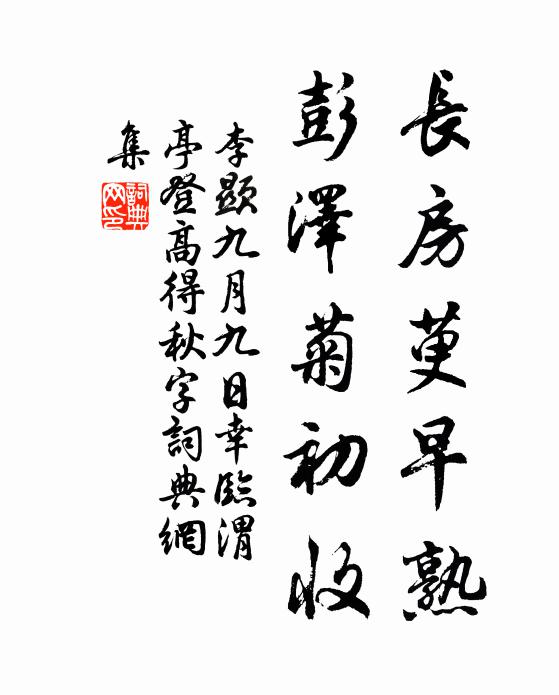 長房萸早熟
彭澤菊初收
李顯九月九日幸臨渭
亭登高得秋字詞典網
集
詞典网印